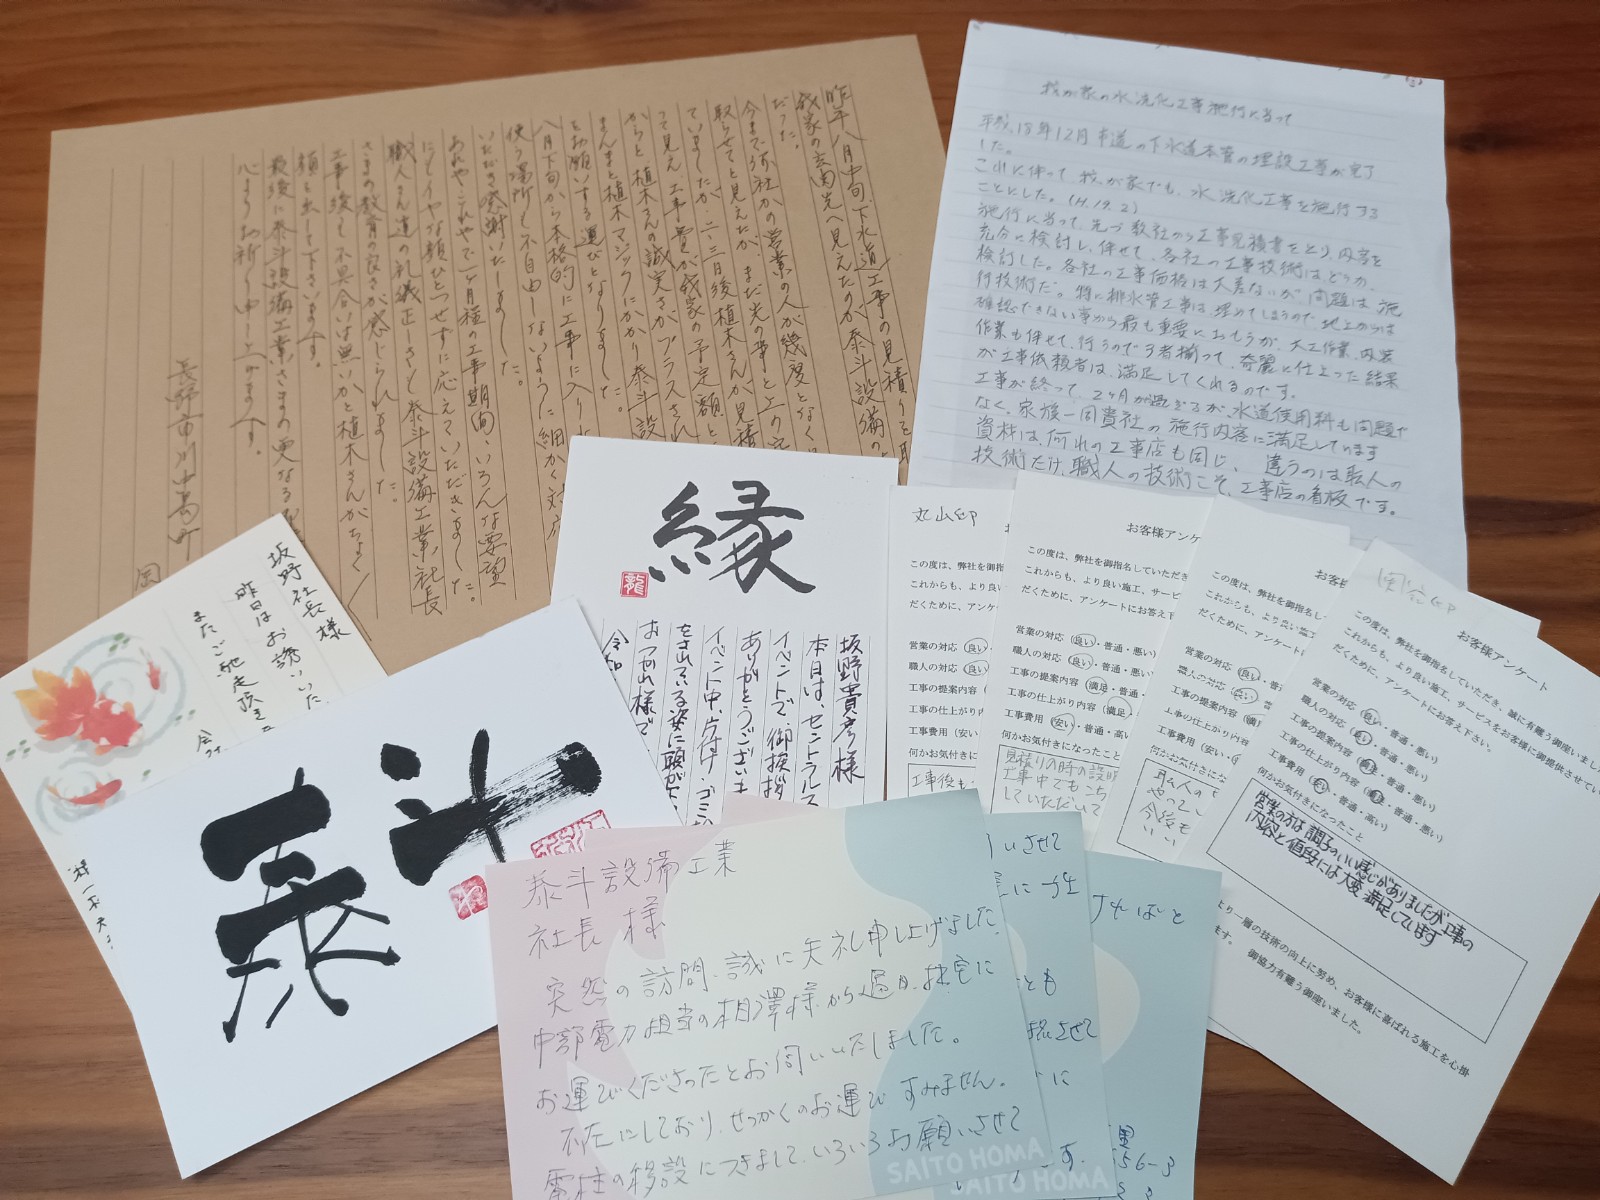 昨年八月中旬、下水道工事の見積りを取
我家の玄関先へ見えたのが泰斗設備の
だった。
今まで何社かの営業の人が幾度となく
取らせてと見えたが、まだ先の事と上の空
ていましたが、二・三日後植木さんが見積
って見え、工事費が我家の予定額と
からと、植木さんの誠実さがプラスされ
まんまと植木マジックにかかり泰斗設
をお願いする運びとなりました。
八月下旬から本格的に工事に入り
使う場所で不自由しないように細かく対応
いただき感謝いたしました。
あれやこれやで一ヶ月程の工事期間、いろんな要望
にもイヤな顔ひとつせずに応えていただきました。
職人さん達の礼儀正しさと泰斗設備工業、社長
さまの教育の良さが感じられました。
工事後も不具合いは無いかと植木さんがちょく
顔を出して下さいます。
最後に泰斗設備工業さまの更なる
心よりお祈り申し上げます。
長野市川中島町
岡
我が家の水洗化工事施行に当って
平成18年12月市道の下水道本管の埋設工事が完了
した。
これに伴って我が家でも、水洗化工事を施行する
ことにした。(H.19.2)
施行に当って、先づ数社から工事見積書をとり、内容を
充分に検討し、併せて、各社の工事技術はどうか、
検討した。各社の工事価格は大差ないが問題は施
行技術だ。特に排水管工事は、埋めてしまうので地上からは
確認できない事から最も重要におもうが、大工作業、内装
作業も併せて、行うので3者揃って、奇麗に仕上った結果
が工事依頼者は、満足してくれるのです。
工事が終って、2ヶ月が過ぎるが、水道使用料も問題
なく、家族一同貴社の施行内容に満足しています
資材は、何れの工事店も同じ、違うのは職人の
技術だけ、職人の技術こそ、工事店の看板です。
坂野社長様
昨日はお誘いいた
またご馳走頂き
泰斗
縁
龍
坂野貴彦様
本日は、セントラルス
イベントで、御挨拶
ありがとうございま
イベント中、片付け・ゴミ
をされている姿に頭が下
おつかれ様で
令和
丸山邸
この度は、弊社を御指名
これからも、より良い施
だくために、アンケ
営業の対応 (良い・
職人の対応 (良い・
工事の提案内容
工事の仕上がり内
工事費用 (安い
何かお気付きにな
工事後も
お客様アンケ
この度は、弊社を御指名していただき
これからも、より良い施工、サービ
だくために、アンケートにお答え下
営業の対応 (良い・普通・悪い)
職人の対応 (良い・普通・悪い)
工事の提案内容 (満足・普通・
工事の仕上がり内容 (満足・
工事費用 (安い・普通・高い
何かお気付きになったこと
見積りの時の説明
工事中でもこち
していただいて
お客様
この度は、弊社を御指名し
これからも、より良い施工
だくために、アンケート
営業の対応 (良い・普
職人の対応 (良い・普
工事の提案内容 (満
工事の仕上がり内容
工事費用 (安い・
何かお気付きにな
職人の
今後も
お客様アンケート
この度は、弊社を御指名していただき、誠に有難う御座いまし
これからも、より良い施工、サービスをお客様に御提供させてい
だくために、アンケートにお答え下さい。
営業の対応 (良い・普通・悪い)
職人の対応 (良い・普通・悪い)
工事の提案内容 (良い・普通・悪い)
工事の仕上がり内容 (良い・普通・悪い)
工事費用 (安い・普通・高い)
何かお気付きになったこと
営業の方は調子のいい感じがありましたが工事の
内容と値段には大変満足しています
より一層の技術の向上に努め、お客様に喜ばれる施工を心掛
ます。
御協力有難う御座いました。
泰斗設備工業
社長様
突然の訪問、誠に失礼申し上げました。
中部電力担当の相澤様から過日、拙宅に
お運びくださったとお伺いいたしました。
不在にしており、せっかくのお運びすみません。
電柱の移設につきまして、いろいろお願いさせて
SAITO HOMA
いさせて
ければと
とも
させて
に
す。
56-3
SAITO HOMA